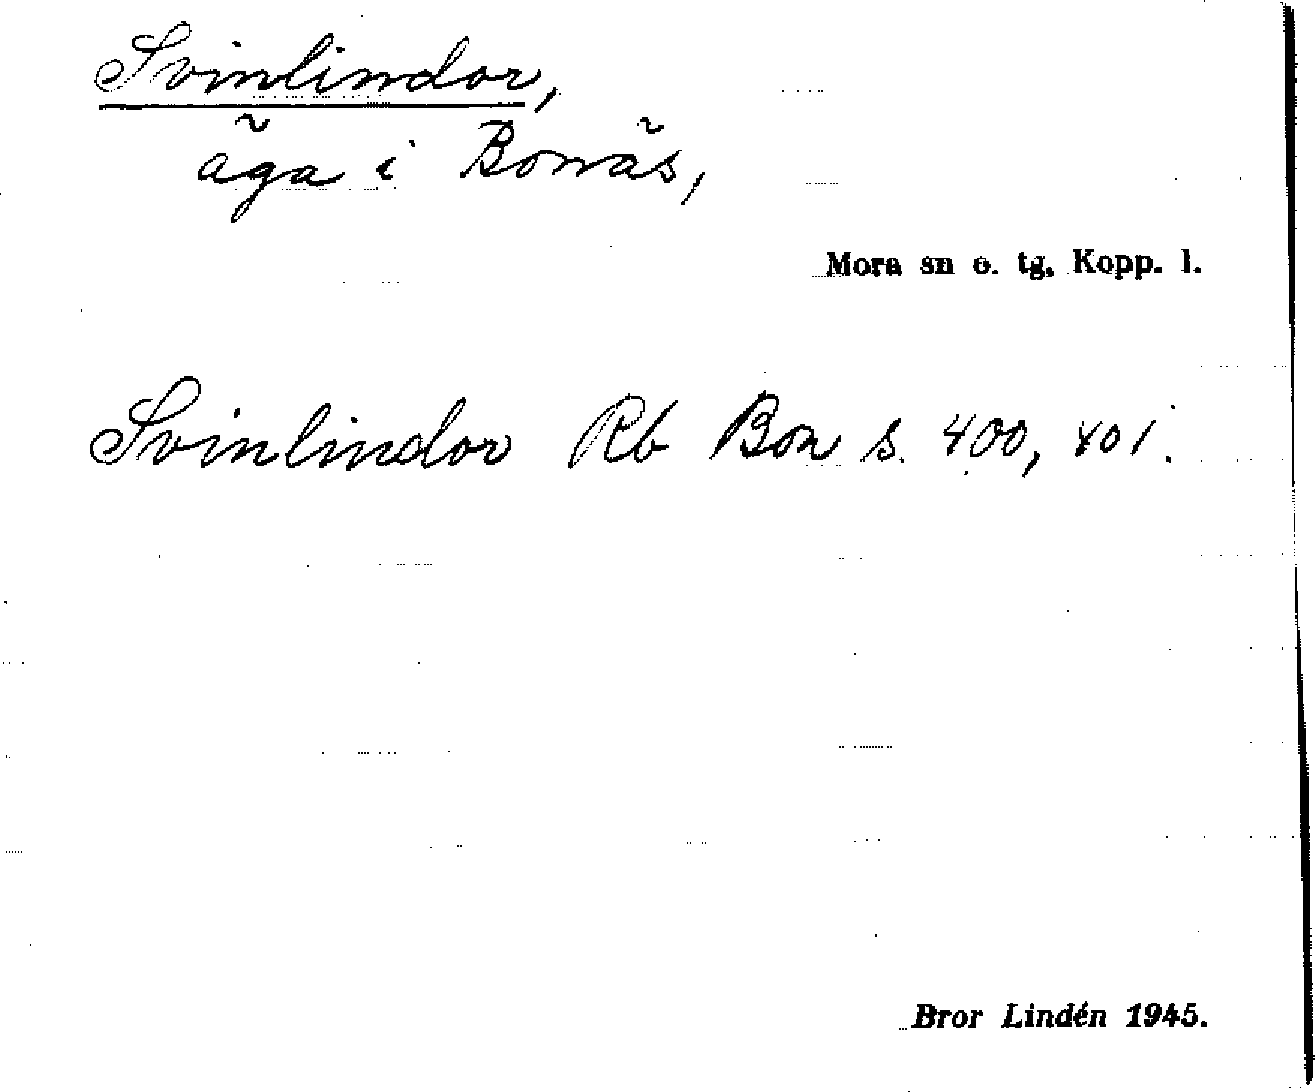 Svinlindor,
äga i Bonäs,
Mora sn o. tg. Kopp. l.
Svinlindor Rb Bon s. 400, 401.
Bror Lindén 1945.